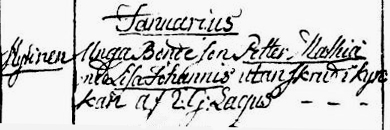 Januarius
Hyvinen Unga Bonde son Petter Mathia
nde Lisa Johannis utan skrud i kyr
kan af V.G. Lagus - - -